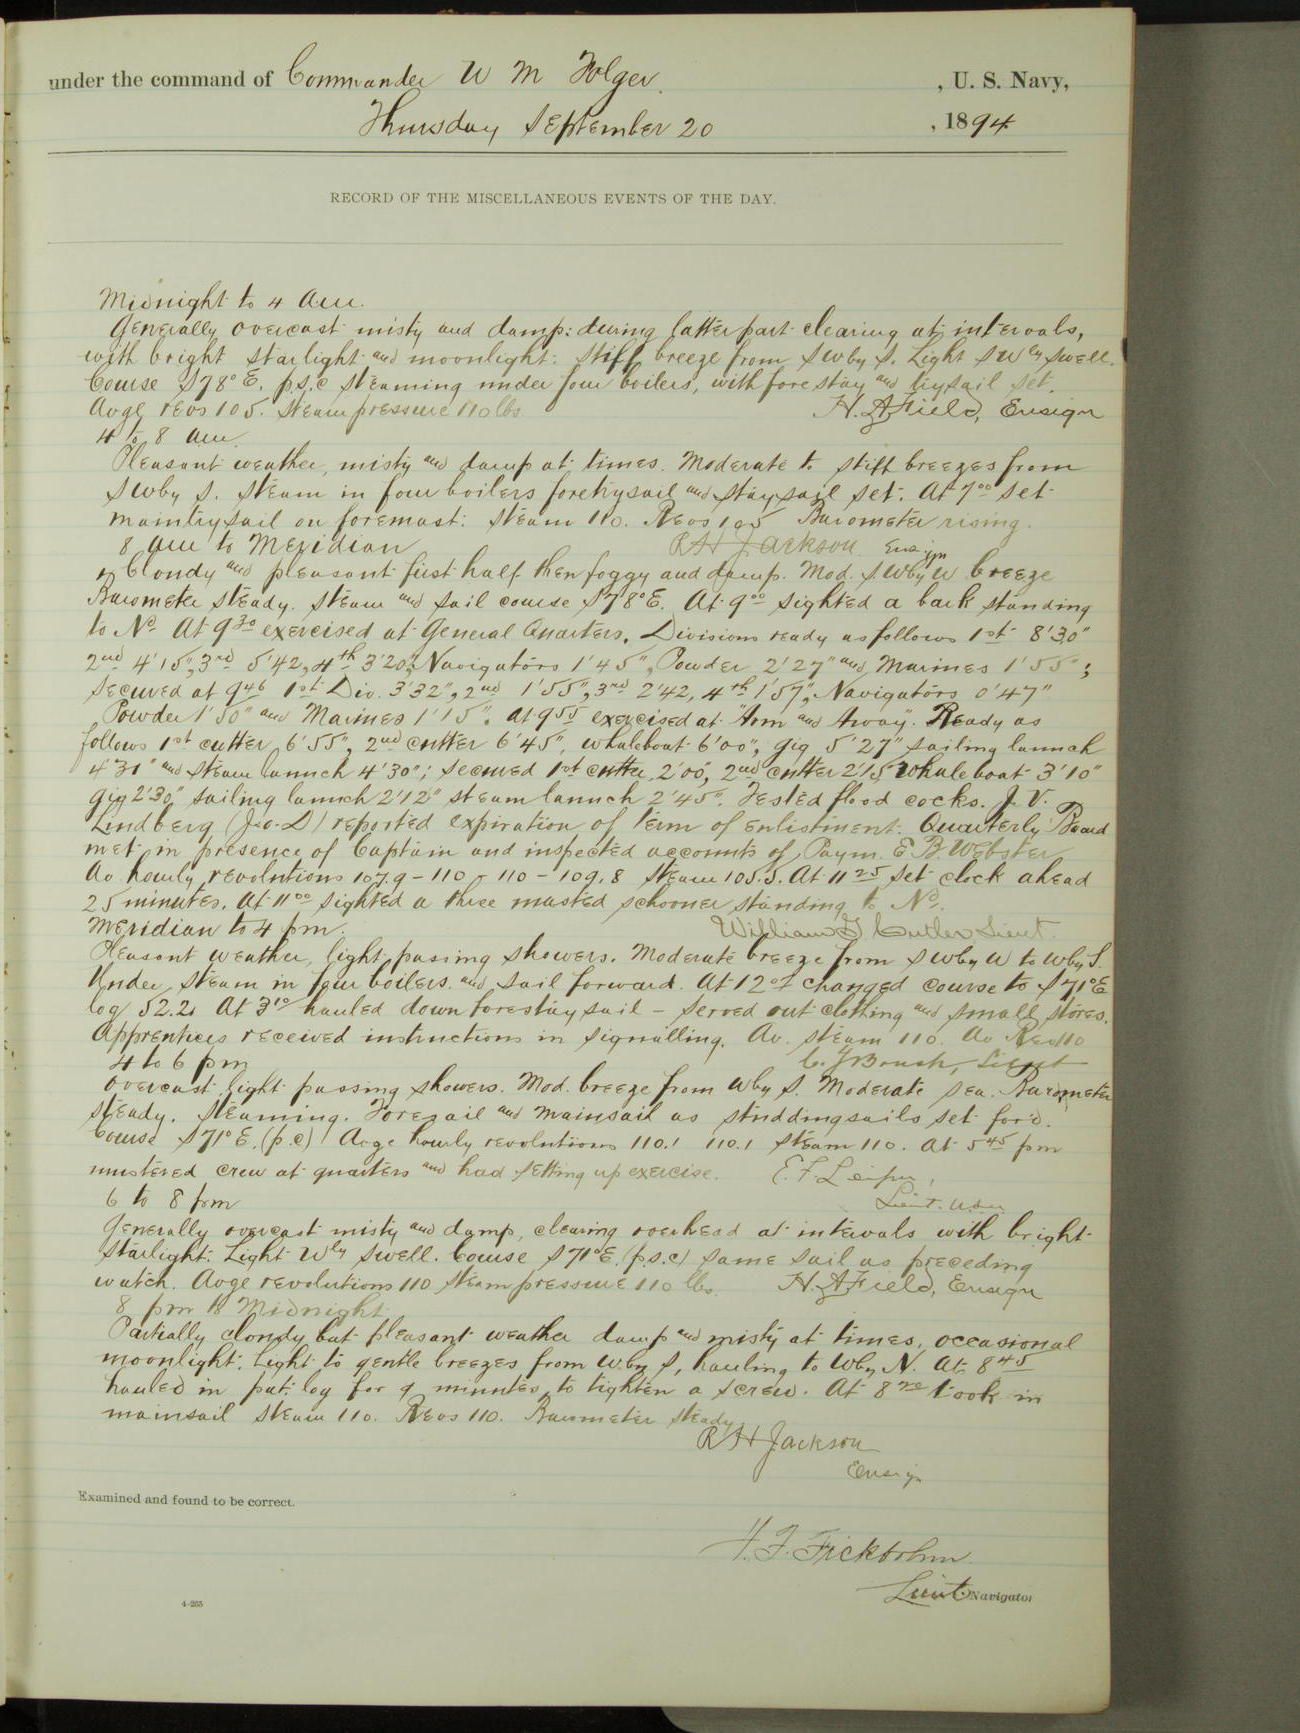 under the command of Commander W M Folger, U. S. Navy,
Thursday September 20, 1894
RECORD OF THE MISCELLANEOUS EVENTS OF THE DAY.
Midnight to 4 am.
Generally overcast misty and damp: during latter part clearing at intervals,
with bright starlight and moonlight: stiff breeze from SW by S. Light SWly swell.
Course S78°E. p.s.c steaming under four boilers, with fore stay and trysail set.
Avge revs 105. Steam pressure 110 lbs. H. A. Field, Ensign
4 to 8 am.
Pleasant weather, misty and damp at times. Moderate to stiff breezes from
SW by S. Steam in four boilers foretrysail and staysail set. At 7 00 set
maintrysail on foremast: steam 110. Revs 105 Barometer rising.
8 am to Meridian R H Jackson Ensign
Cloudy and pleasant first half then foggy and damp. Mod. SW by W breeze
Barometer steady. Steam and sail course S78°E. At 9 00 sighted a bark standing
to Nd. At 9 30 exercised at General Quarters. Divisions ready as follows 1st 8'30"
2nd 4'15", 3rd 5'42, 4th 3'20", Navigators 1'45", Powder 2'27" and Marines 1'55";
secured at 9 46 1st Div. 3'32", 2nd 1'55", 3rd 2'42, 4th 1'57", Navigators 0'47"
Powder 1'50" and Marines 1'15". At 9 55 exercised at "Arm and Away". Ready as
follows 1st cutter 6'55", 2nd cutter 6'45", whaleboat 6'00", gig 5'27" sailing launch
4'31" and steam launch 4'30"; secured 1st cutter 2'00", 2nd cutter 2'15" whaleboat 3'10"
gig 2'30" sailing launch 2'12" steam launch 2'45". Tested flood cocks. J. V.
Lindberg reported expiration of term of enlistment. Quarterly Board
met in presence of Captain and inspected accounts of Paym. E B. Webster
Av hourly revolutions 107.9 - 110 - 110 - 109.8 steam 105.5. At 11 25 set clock ahead
25 minutes. At 11 00 sighted a three masted schooner standing to Nd.
Meridian to 4 pm. William G Cutler Lieut.
Pleasant weather, light passing showers. Moderate breeze from SW by W to W by S.
Under steam in four boilers and sail forward. At 12 changed course to S71°E
log 52.2. At 3 10 hauled down forestaysail - served out clothing and small stores.
Apprentices received instructions in signalling. Av. steam 110. Av Rev 110
4 to 6 pm Lieut
Overcast light passing showers. Mod. breeze from W by S. Moderate sea. Barometer
steady. Steaming. Foresail and mainsail as studdingsails set for'd.
Course S71°E. (p.c) Avge hourly revolutions 110.1 110.1 steam 110. At 5 45 pm
mustered crew at quarters and had setting up exercise. E. F. Leiper,
6 to 8 pm Lieut. USN
Generally overcast misty and damp, clearing overhead at intervals with bright
starlight. Light Wly swell. Course S71°E. (p.s.c) same sail as preceding
watch. Avge revolutions 110 steam pressure 110 lbs. H. A. Field, Ensign
8 pm to Midnight
Partially cloudy but pleasant weather damp and misty at times, occasional
moonlight. Light to gentle breezes from W by S, hauling to W by N. At 8 45
hauled in pat. log for 9 minutes to tighten a screw. At 8 took in
mainsail steam 110. Revs 110. Barometer steady
R H Jackson
Ensign
Examined and found to be correct.
Lieut Navigator
4-265